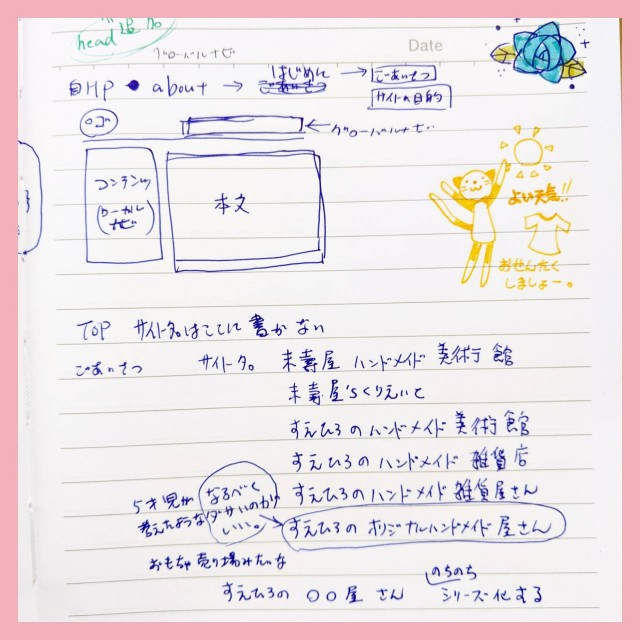 head 追加
グローバルナビ
Date
自HP ● about → はじめに → ごあいさつ
サイトの目的
ロゴ
←グローバルナビ
コンテンツ
(ローカルナビ)
本文
よい天気!!
おせんたく
しましょー。
TOP サイト名はここに書かない
ごあいさつ サイト名。 末壽屋 ハンドメイド 美術館
末壽屋'sくりえいと
すえひろのハンドメイド 美術館
すえひろのハンドメイド 雑貨店
すえひろのハンドメイド 雑貨屋さん
5才児が
考えたような
なるべく
ダサいのが
いい。
すえひろの オリジナルハンドメイド 屋さん
おもちゃ売り場みたいな
すえひろの 〇〇屋 さん
のちのち
シリーズ化する